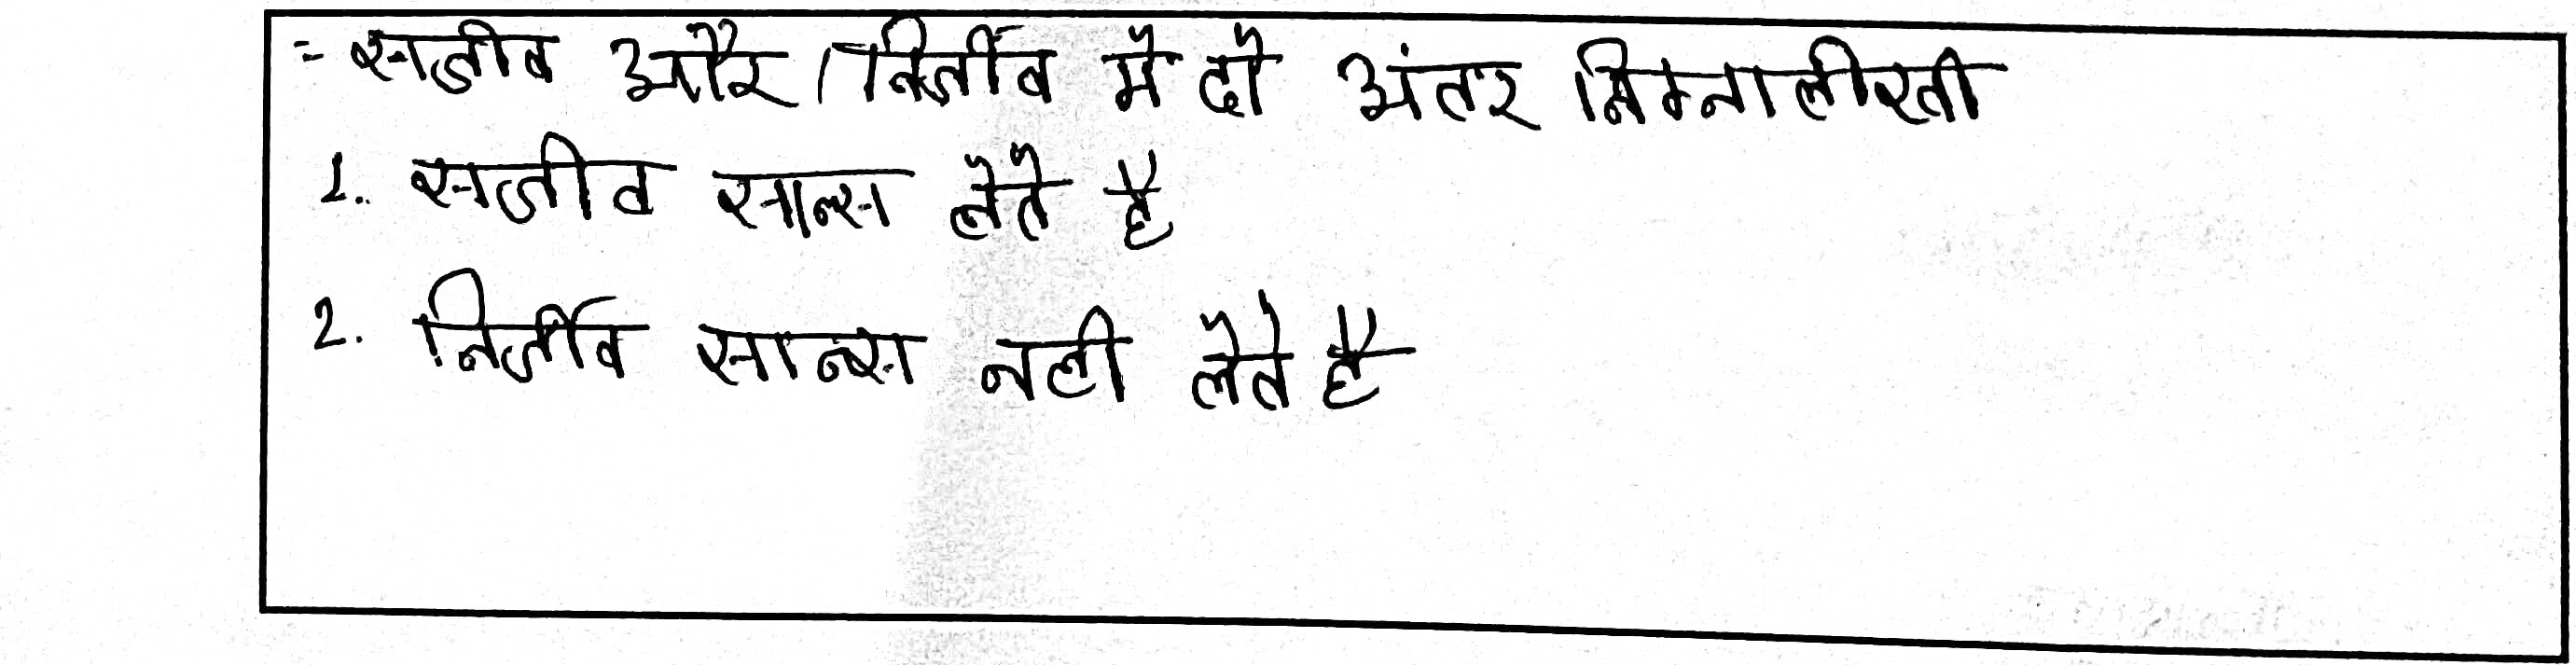 = सजीव और निर्जीव मे दो अंतर निम्नालीस्ती
1. सजीव सान्स लेते है
2. निर्जीव सान्स नही लेते है